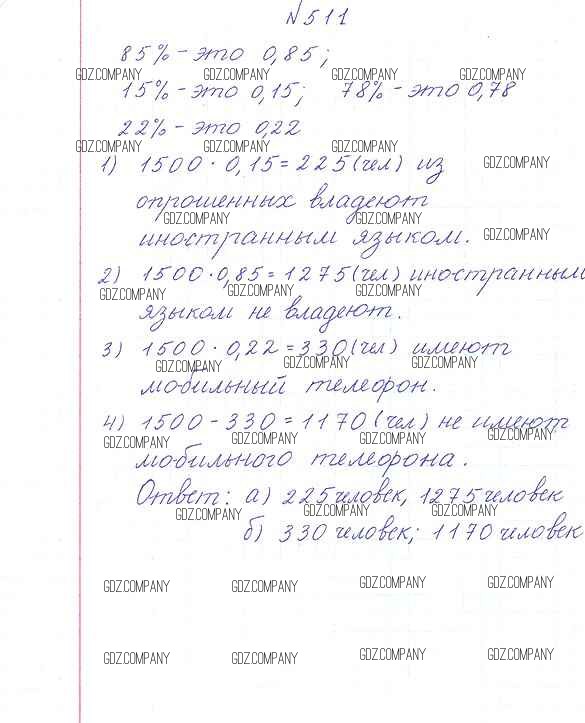 №511
85% - это 0,85;
GDZ.COMPANY GDZ.COMPANY GDZ.COMPANY GDZ.COMPANY
15% - это 0,15; 78% - это 0,78
22% - это 0,22
GDZ.COMPANY GDZ.COMPANY GDZ.COMPANY
1) 1500 · 0,15 = 225 (чел) из GDZ.COMPANY
опрошенных владеют
GDZ.COMPANY GDZ.COMPANY
иностранным языком. GDZ.COMPANY
2) 1500 · 0,85 = 1275 (чел) иностранным
GDZ.COMPANY GDZ.COMPANY GDZ.COMPANY
языком не владеют.
3) 1500 · 0,22 = 330 (чел) имеют
GDZ.COMPANY GDZ.COMPANY GDZ.COMPANY
мобильный телефон.
4) 1500 - 330 = 1170 (чел) не имеют
GDZ.COMPANY GDZ.COMPANY GDZ.COMPANY GDZ.COMPANY
мобильного телефона.
Ответ: а) 225 человек, 1275 человек
GDZ.COMPANY GDZ.COMPANY GDZ.COMPANY
б) 330 человек; 1170 человек
GDZ.COMPANY GDZ.COMPANY GDZ.COMPANY GDZ.COMPANY
GDZ.COMPANY GDZ.COMPANY GDZ.COMPANY GDZ.COMPANY